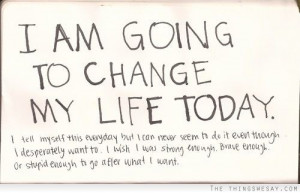 I AM GOING
TO CHANGE
MY LIFE TODAY.
I tell myself this everyday but I can never seem to do it even though
I desperately want to. I wish I was strong enough. Brave enough.
Or stupid enough to go after what I want.
THETHINGSWESAY.COM